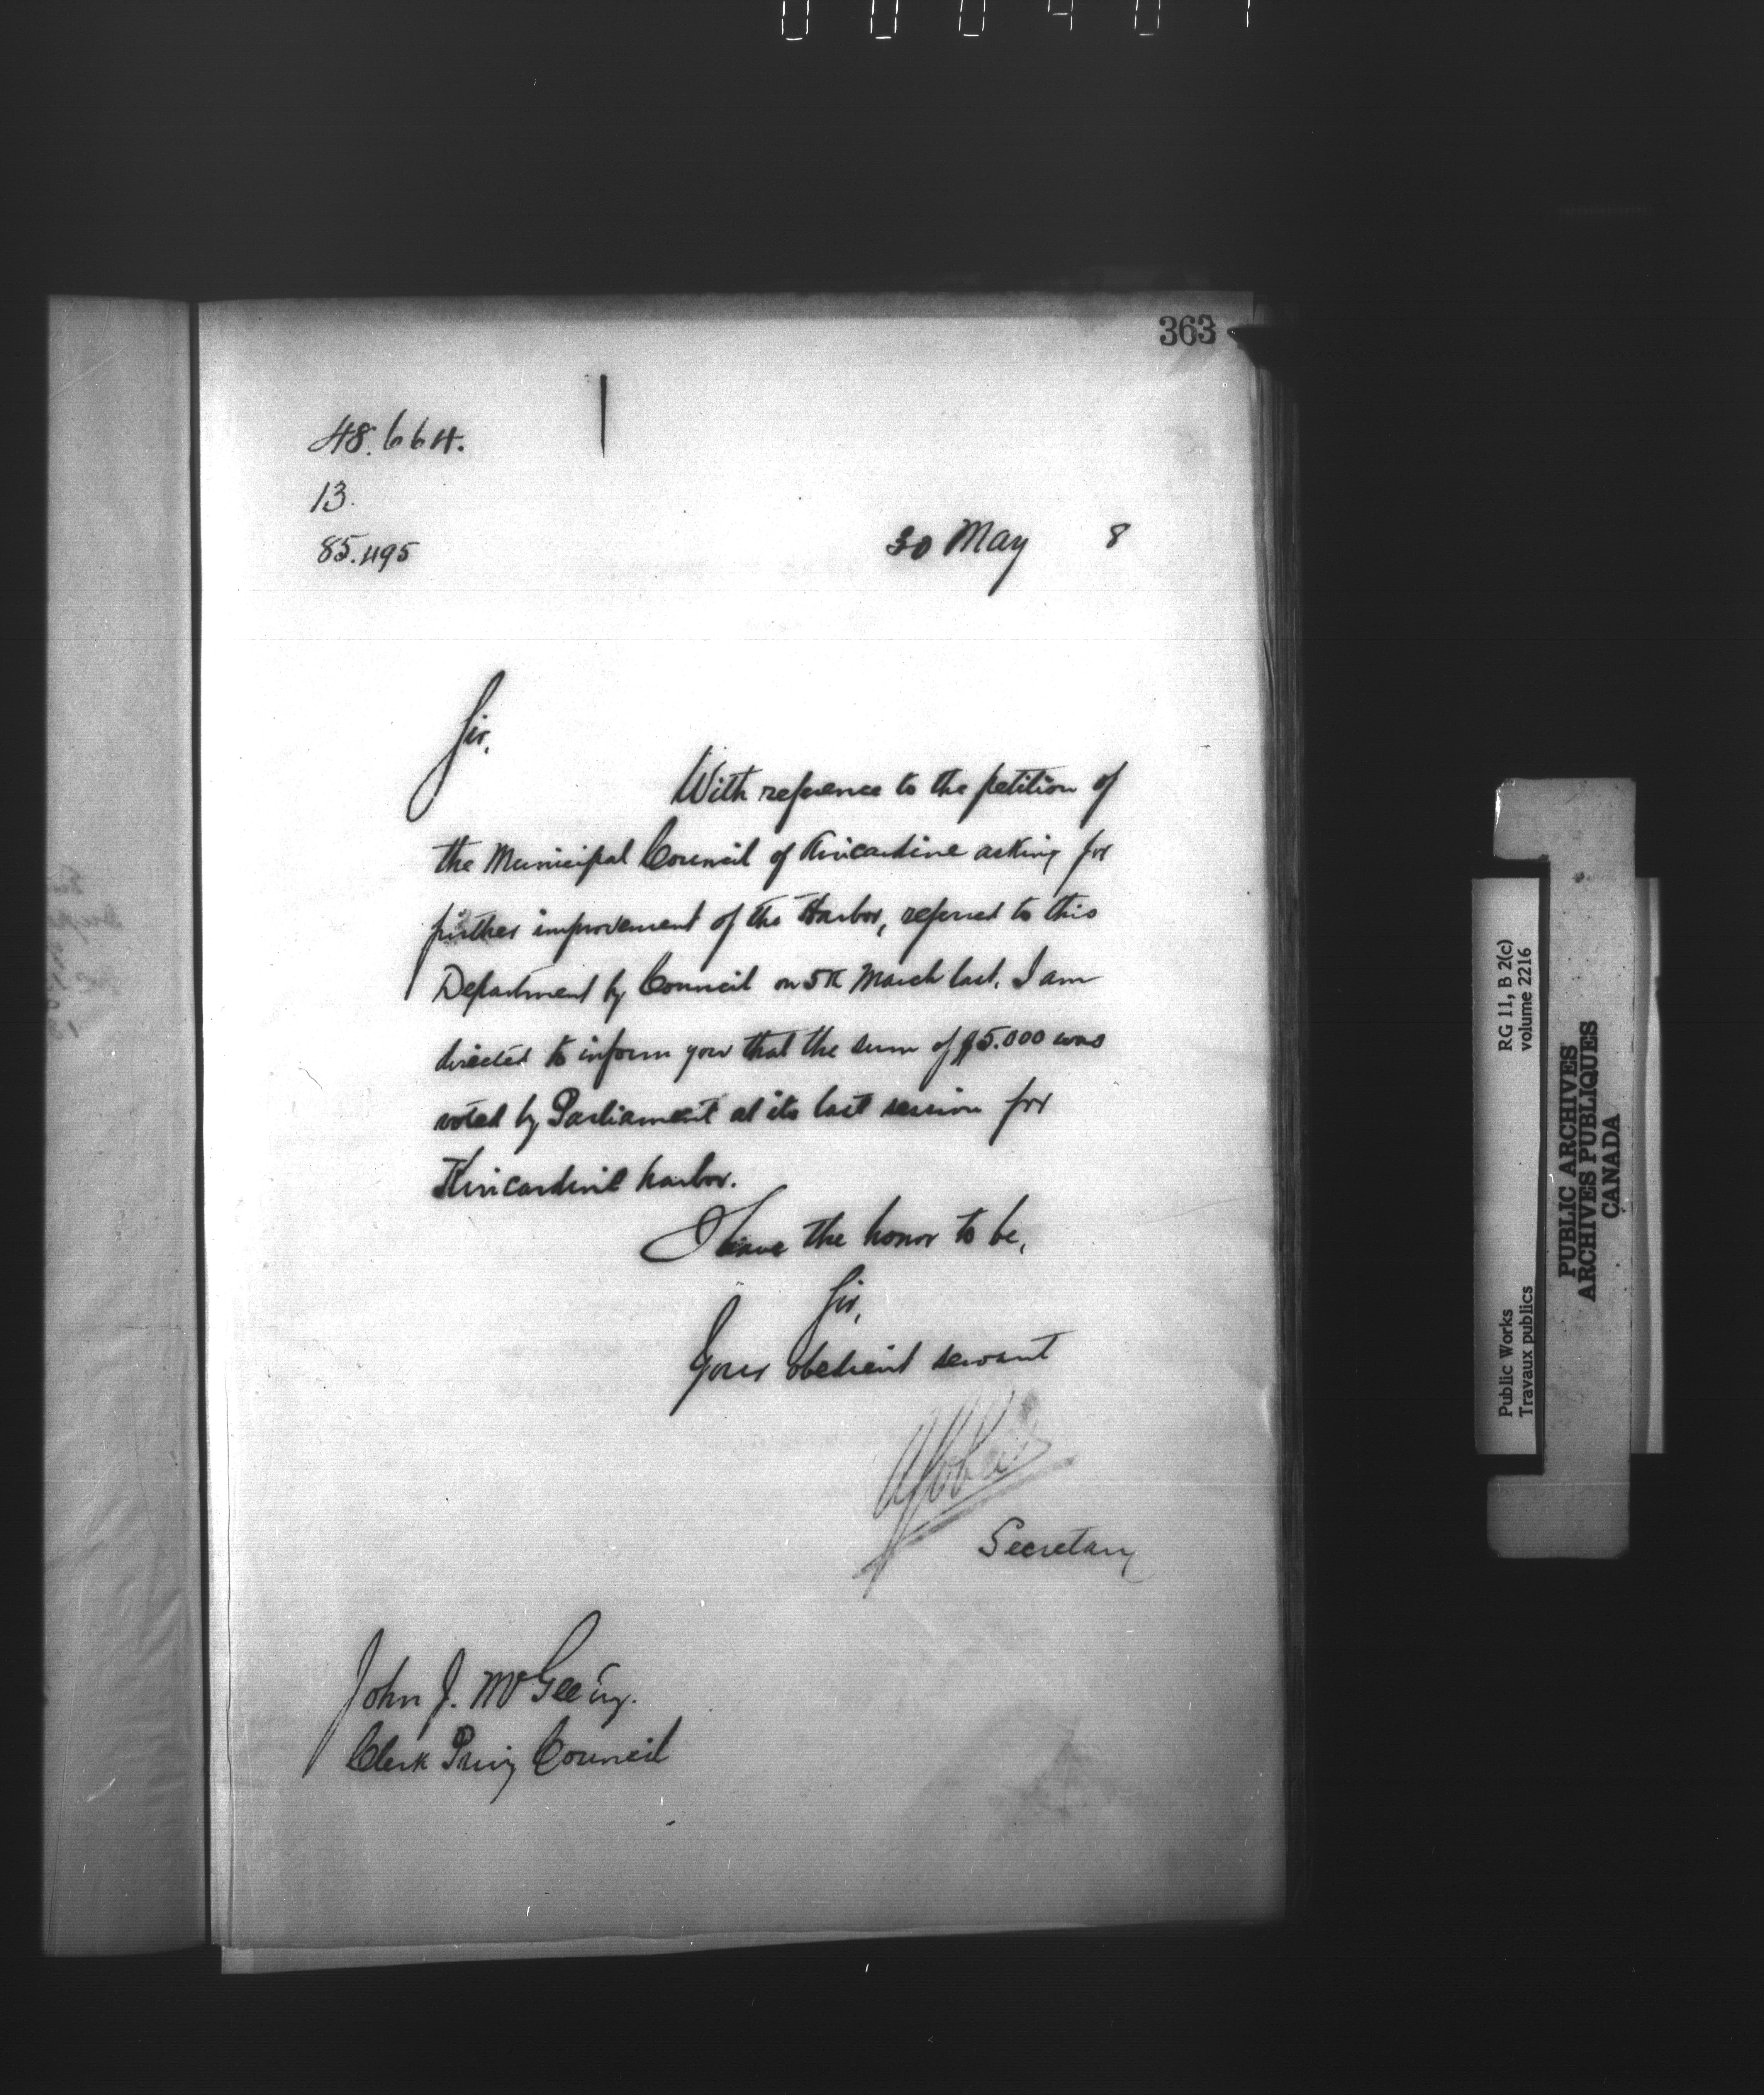 363
48.664.
13.
85.495
30 May 8
Sir,
With reference to the petition of
the Municipal Council of Kincardine asking for
further improvement of the Harbor, referred to this
Department by Council on 5th March last, I am
directed to inform you that the sum of $5.000 was
voted by Parliament at its last session for
Kincardine harbor.
I have the honor to be,
Sir,
Your obedient servant
Secretary
John J. McGee Esq.
Clerk Privy Council
RG 11, B 2(c)
volume 2216
Public Works
Travaux publics
PUBLIC ARCHIVES
ARCHIVES PUBLIQUES
CANADA